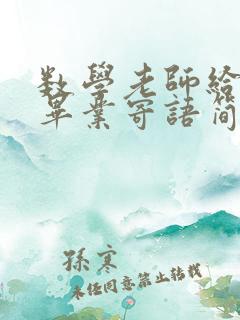 数學老師給
畢業寄語简
孫寒
未经同意禁止转载